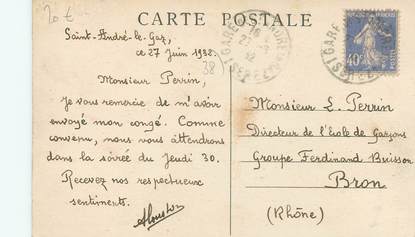 20 €
CARTE POSTALE
Saint-André-le-Gaz,
ce 27 Juin 1938.
38
Monsieur Perrin,
Je vous remercie de m'avoir
envoyé mon congé. Comme
convenu, nous vous attendrons
dans la soirée du Jeudi 30.
Recevez nos respectueux
sentiments.
Monsieur L. Perrin
Directeur de l'Ecole de Garçons
Groupe Ferdinand Buisson
Bron
(Rhône)
GARE
ISERE
40c